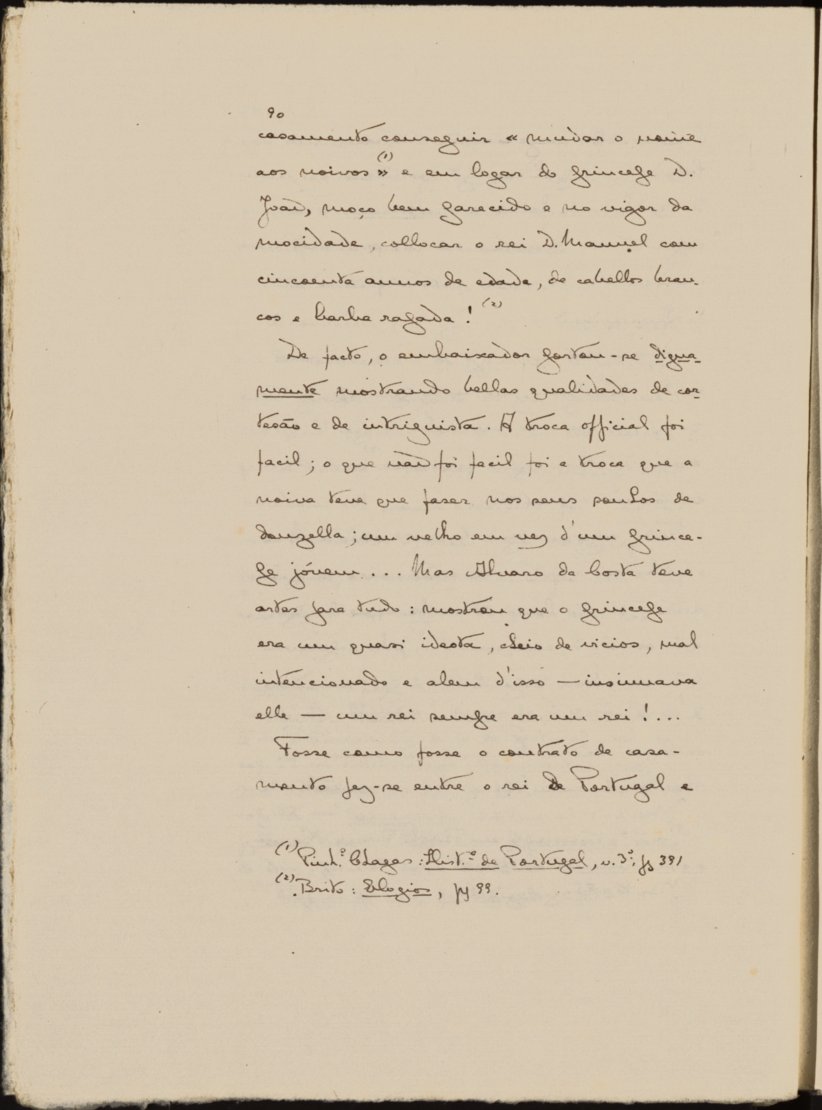 90
casamento conseguir « mudar o nome
aos noivos (1) » e em logar do principe D.
João, moço bem parecido e no vigor da
mocidade, collocar o rei D. Manuel com
cincoenta annos de edade, de cabellos bran-
cos e barba rapada! (2)
De facto, o embaixador portou-se digna-
mente mostrando bellas qualidades de cor-
tesão e de intriguista. A troca official foi
facil; o que não foi facil foi a troca que a
noiva teve que faser nos seus sonhos de
donzella; um velho em vez d'um princi-
pe jóvem... Mas Alvaro da Costa teve
artes para tudo: mostrou que o principe
era um quasi ideota, cheio de vicios, mal
intencionado e alem d'isso — insinuava
elle — um rei sempre era um rei!...
Fosse como fosse o contrato de casa-
mento fez-se entre o rei de Portugal e
(1) Pinh.º Chagas: Hist.ª de Portugal, v. 3º; pg 391
(2) Brito: Elogios, pg 99.